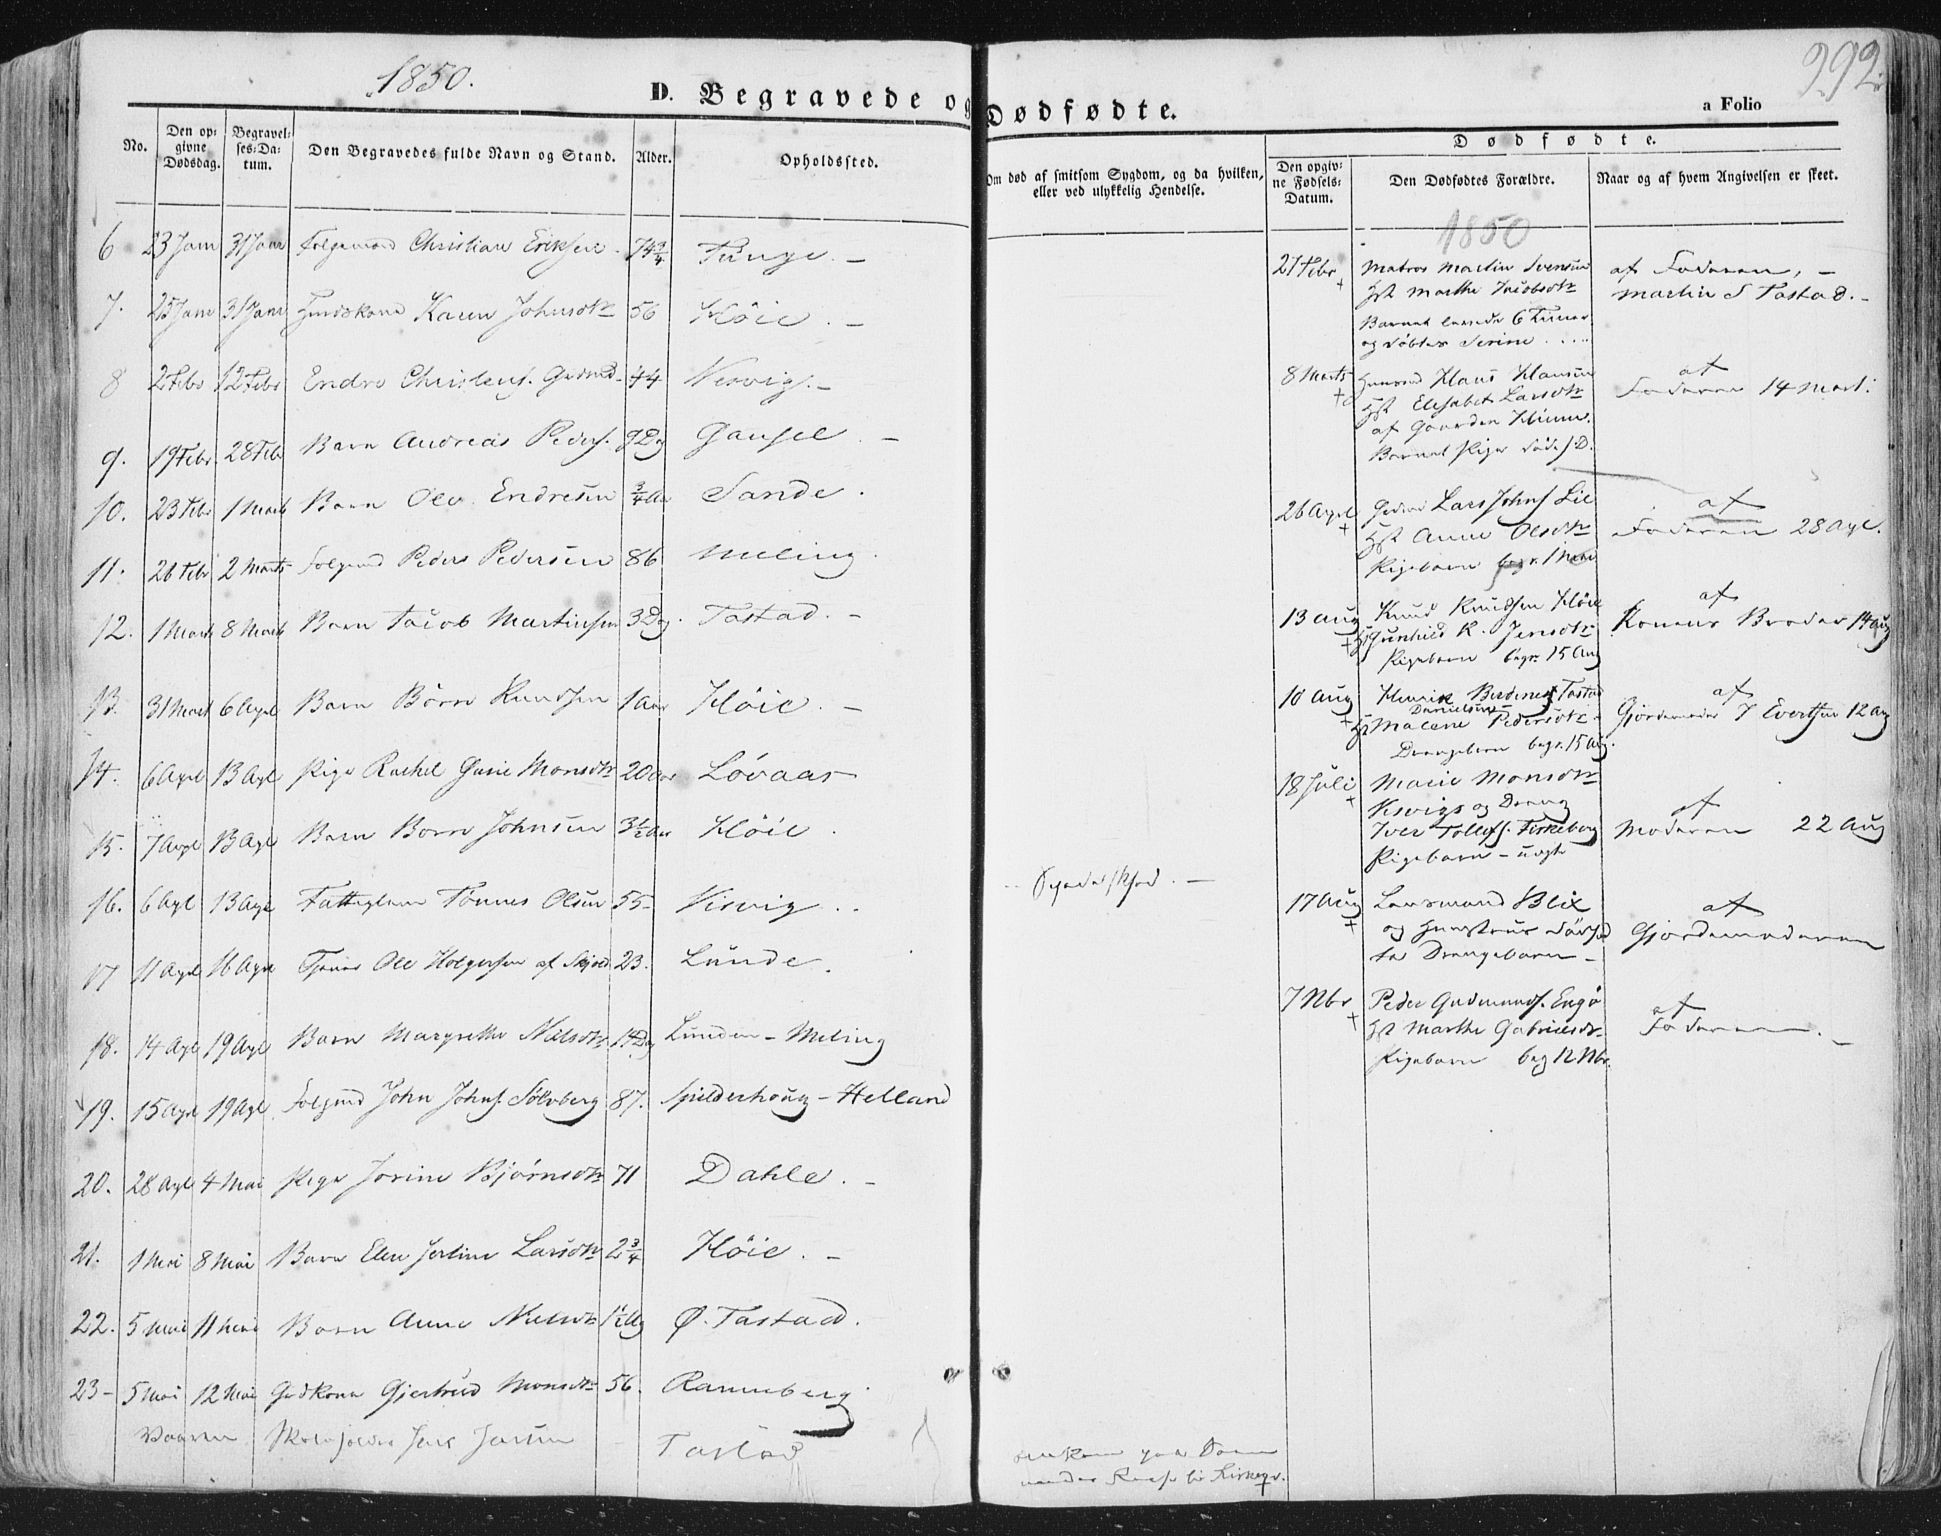 1850.
292.
D. Begravede og Dødfødte.
a Folio
No.
Den opgivne Dødsdag.
Begravelses-Datum.
Den Begravedes fulde Navn og Stand.
Alder.
Opholdssted.
Om død af smitsom Sygdom, og da hvilken, eller ved ulykkelig Hendelse.
Dødfødte.
Den opgivne Fødsels-Datum.
Den Dødfødtes Forældre.
Naar og af hvem Angivelsen er skeet.
6 23 Janr 31 Janr Christian Eriksen 74 3/4 Tunge. -
7. 25 Janr 31 Janr Karen Johnsdtr 56 Höie. -
8 2 Febr 12 Febr Endre Christens. 44 Visvig. -
9. 19 Febr. 28 Feb Barn Andreas Peders. 9 Dg Gausel. -
10. 23 Febr 1 Marts Barn Ole Endresen 3/4 Aar Sande.
11. 26 Febr 2 Marts Peder Pedersen 86 Meling.
12. 1 Marts 8 Marts Barn Jacob Martinsen 3 Dg. Tastad. -
13. 31 Mart 6 Apl Barn Börre Knudsen 1 Aar Höie. -
14. 6 Apl 13 Apl Pige Rachel Monsdtr 20 Aar Lövaas
15. 7 Apl 13 Apl Barn Johnsen 3 1/2 Aar Höie.
16. 6 Apl 13 Apl Tönnes Olsen 55 Visvig. .
17 11 Apl 16 Apl Ole Holgersen af 23. Lunde.
18. 14 Apl 19 Apl Barn Margrethe Nielsdtr 14 Dg Lunden - Meling
19. 15 Apl 19 Apl John Johns. Sölvberg 87. Spilderhoug - Helland
20. 28 Apl 4 Mai Pige Jorine Bjórnsdtr 71 Dahle. -
21. 1 Mai 8 Mai Barn Elen Larsdtr 2 3/4 Höie. -
22. 5 Mai 11 Mai Barn Anne Nielsdtr Ø. Tastad.
23 - 5 Mai 12 Mai Gjertrud Monsdtr 56. Ranneberg
Vaaren Skoleholder Tastad
1850
27 Febr
Matros Martin Svensen
Hst Marthe Jacobsdtr
Barnet levede 6 Timer
og döbtes Serine . . . .
af Faderen, -
Martin S Tastad. -
8 Marts
Hans Hansen
Hst Elisabet Larsdtr
af Gaarden
Barnet Pige
af
Faderen 14 Mart.
26 Apl
Lars Johns. Lie
Hst Anne Olsdtr
Pigebarn begr. 1 Mai
af
Faderen 28 Apl.
13 Aug
Knud Knudsen Höie
Hst Gunhild K. Jensdtr
Pigebarn begr. 15 Aug
af
Konens Broder 14 Aug
10 Aug
Henrik Tastad
Danielsen
Hst Malene Pedersdtr
Drengebarn begr. 15 Aug.
af
Gjordemoder J Evertsen 12 Aug
18 Juli
Marie Monsdtr
Visvig og Dreng
Iver Tollefs. Fiskebæg
Pigebarn - uægte
af
Moderen 22 Aug
17 Aug
Lensmand Blix
og Hustrues dödföd
te Drengebarn -
af
Gjordemoderen
7 Nbr
Peder Gudmunds. Engö
Hst Marthe Gabrielsdtr
Pigebarn beg 12 Nbr.
af
Faderen. -